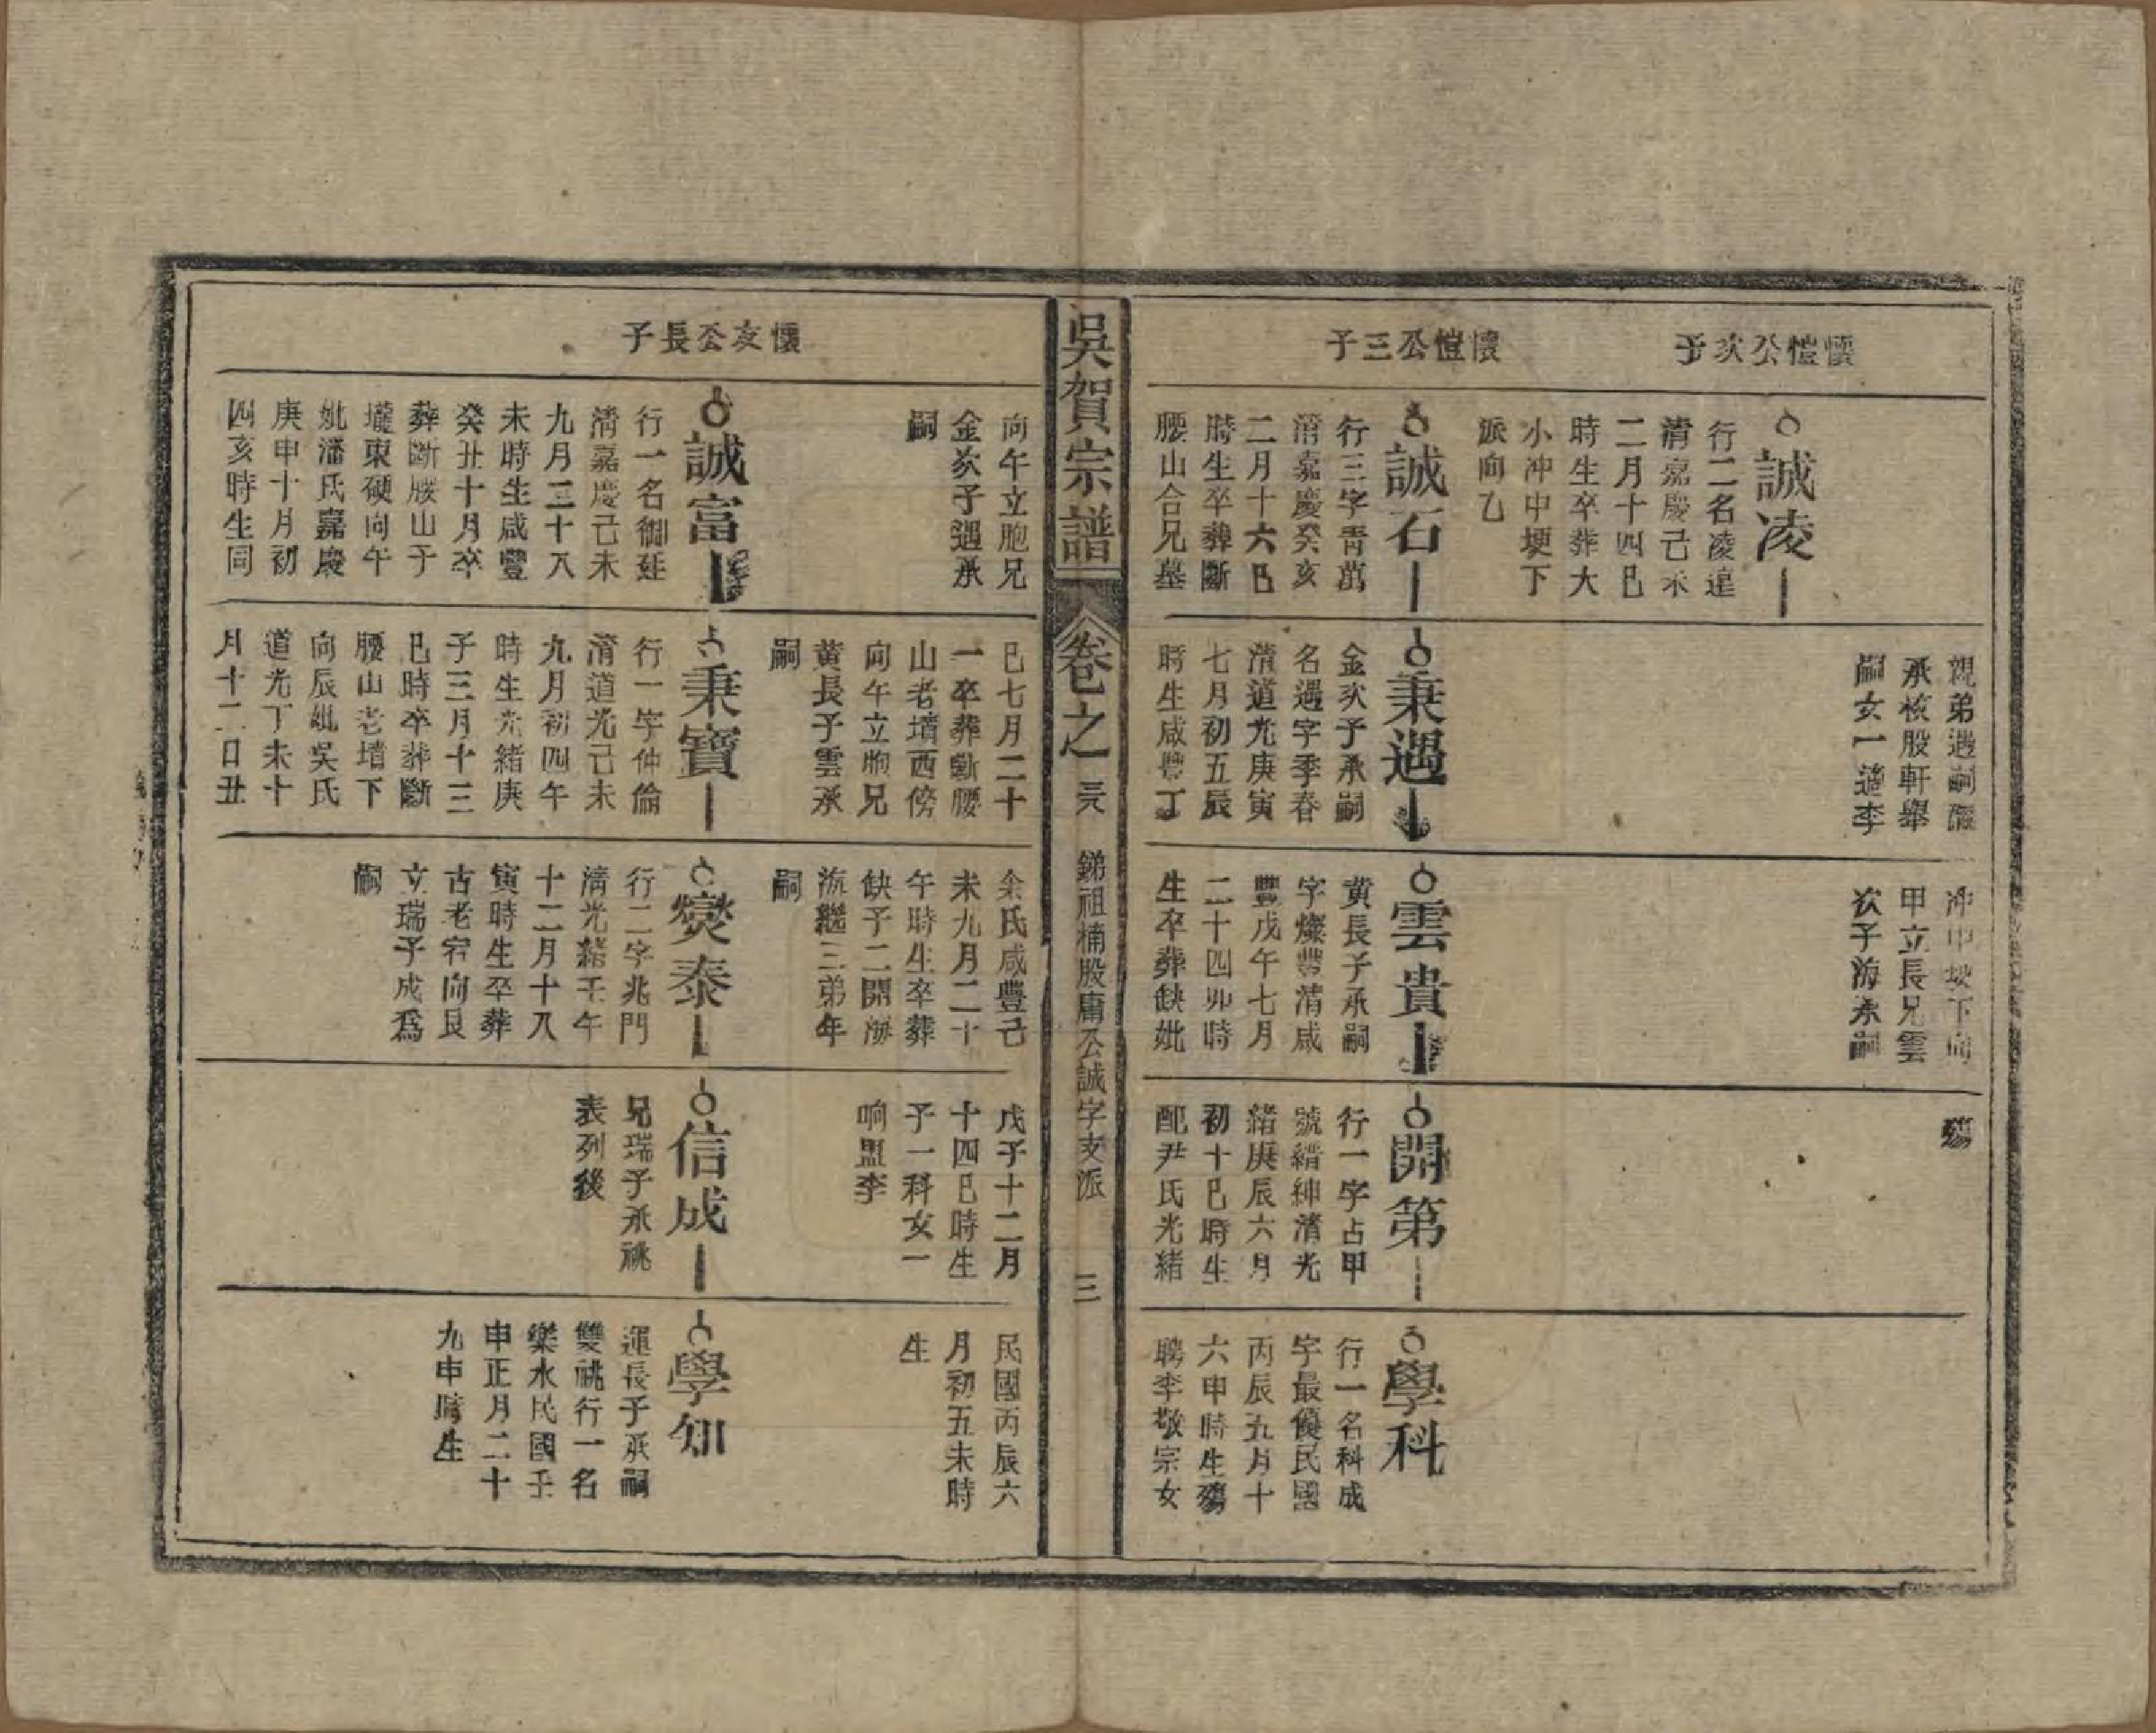 懷愷公次子
誠凌
行二名凌遑
清嘉慶己未
二月十四巳
時生卒葬大
小冲中埂下
派向乙
懷愷公三子
誠石
行三字青萬
清嘉慶癸亥
二月十六巳
時生卒葬斷
腰山合兄墓
親弟遇嗣
承核股軒舉
嗣女一適李
秉遇
金次子承嗣
名遇字季春
清道光庚寅
七月初五辰
時生咸豐丁
冲中埂下向
甲立長兄雲
次子海承嗣
雲貴
黄長子承嗣
字燦豐清咸
豐戊午七月
二十四卯時
生卒葬缺妣
殤
開第
行一字占甲
號縉紳清光
緒庚辰六月
初十巳時生
配尹氏光緒
學科
行一名科成
字最優民國
丙辰五月十
六申時生殤
聘李敬宗女
吳賀宗譜
卷之一
銻祖楠股庸公誠字支派
三
向午立胞兄
金次子遇承
嗣
懷友公長子
誠富
行一名御廷
清嘉慶己未
九月二十八
未時生咸豐
癸丑十月卒
葬斷腰山于
壠東硬向午
妣潘氏嘉慶
庚申十月初
四亥時生同
巳七月二十
一卒葬斷腰
山老墳西傍
向午立胞兄
黄長子雲承
嗣
秉寶
行一字仲倫
清道光己未
九月初四午
時生光緒庚
子三月十三
巳時卒葬斷
腰山老墳下
向辰妣吳氏
道光丁未十
月十二日丑
余氏咸豐己
未九月二十
午時生卒葬
缺子二開海
流繼三弟年
嗣
燮泰
行二字兆門
清光緒壬午
十二月十八
寅時生卒葬
古老宕向艮
立瑞子成爲
嗣
戊子十二月
十四巳時生
子一科女一
响盟李
信成
兄瑞子承祧
表列後
民國丙辰六
月初五未時
生
學知
運長子承嗣
雙祧行一名
樂水民國壬
申正月二十
九申時生